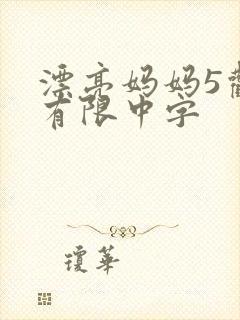 漂亮妈妈5
有限中字
琼華